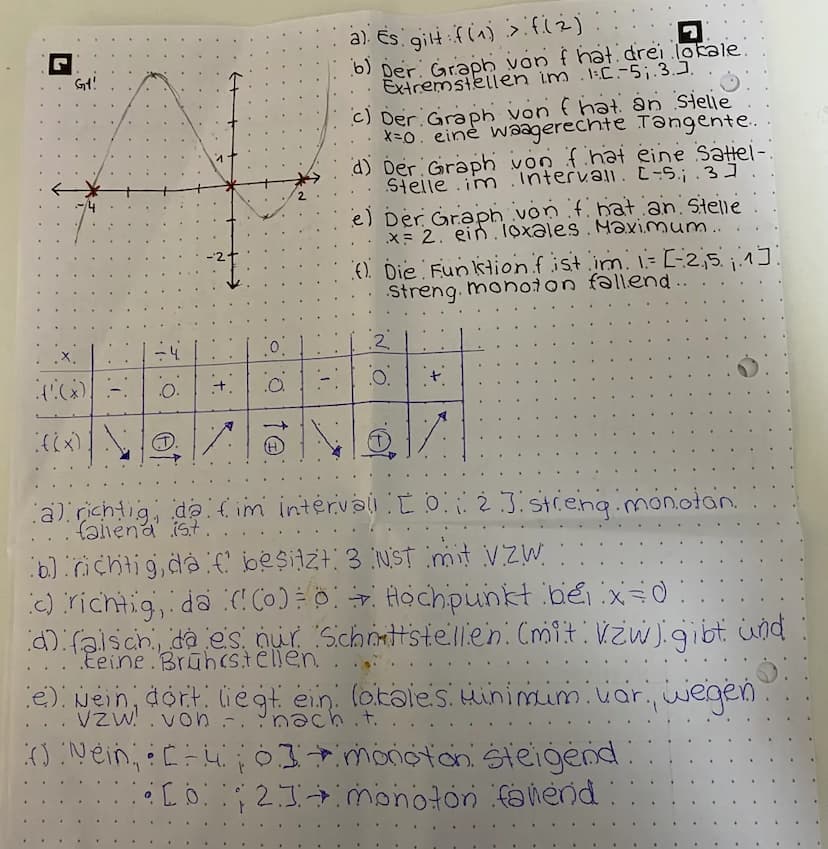 Gf'
1
-4
2
-2
a) Es gilt f(1) > f(2)
b) Der Graph von f hat drei lokale
Extremstellen im I=[-5; 3]
c) Der Graph von f hat an Stelle
x=0 eine waagerechte Tangente.
d) Der Graph von f hat eine Sattel-
stelle im Intervall [-5; 3]
e) Der Graph von f hat an Stelle
x=2 ein lokales Maximum.
f) Die Funktion f ist im I=[-2,5; 1]
streng monoton fallend.
x -4 0 2
f'(x) - 0 + 0 - 0 +
f(x) ↘ T → ↗ H → ↘ T → ↗
a) richtig, da f im Intervall [0; 2] streng monoton
fallend ist.
b) richtig, da f' besitzt 3 NST mit VZW
c) richtig, da f'(0)=0 → Hochpunkt bei x=0
d) falsch, da es nur Schnittstellen (mit VZW) gibt und
keine Brührstellen
e) Nein, dort liegt ein lokales Minimum vor, wegen
VZW von - nach +
f) Nein, • [-4; 0] → monoton steigend
• [0; 2] → monoton fallend